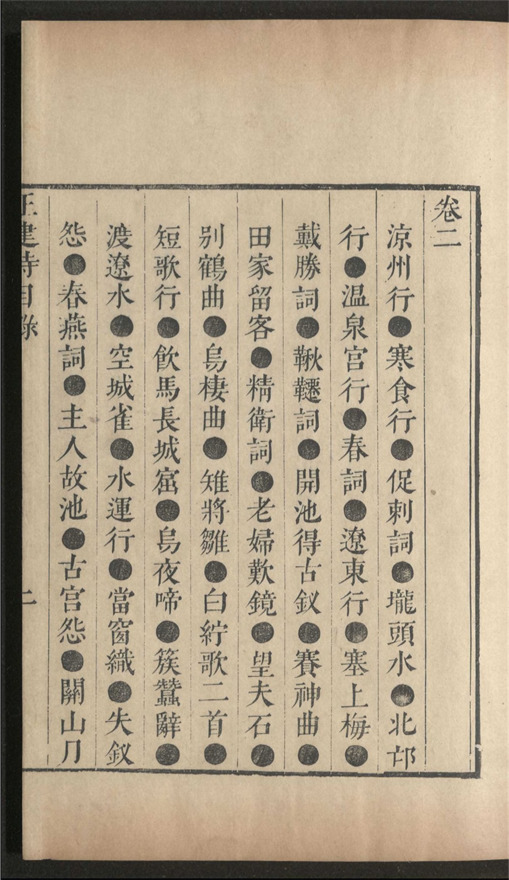 卷二
涼州行●寒食行●促刺詞●壠頭水●北邙
行●温泉宫行●春詞●遼東行●塞上梅●
戴勝詞●鞦韆詞●開池得古釵●賽神曲●
田家留客●精衛詞●老婦歎鏡●望夫石●
别鶴曲●烏棲曲●雉將雛●白紵歌二首●
短歌行●飲馬長城窟●烏夜啼●簇蠶辭●
渡遼水●空城雀●水運行●當窗織●失釵
怨●春燕詞●主人故池●古宫怨●關山月
王建詩目錄 二